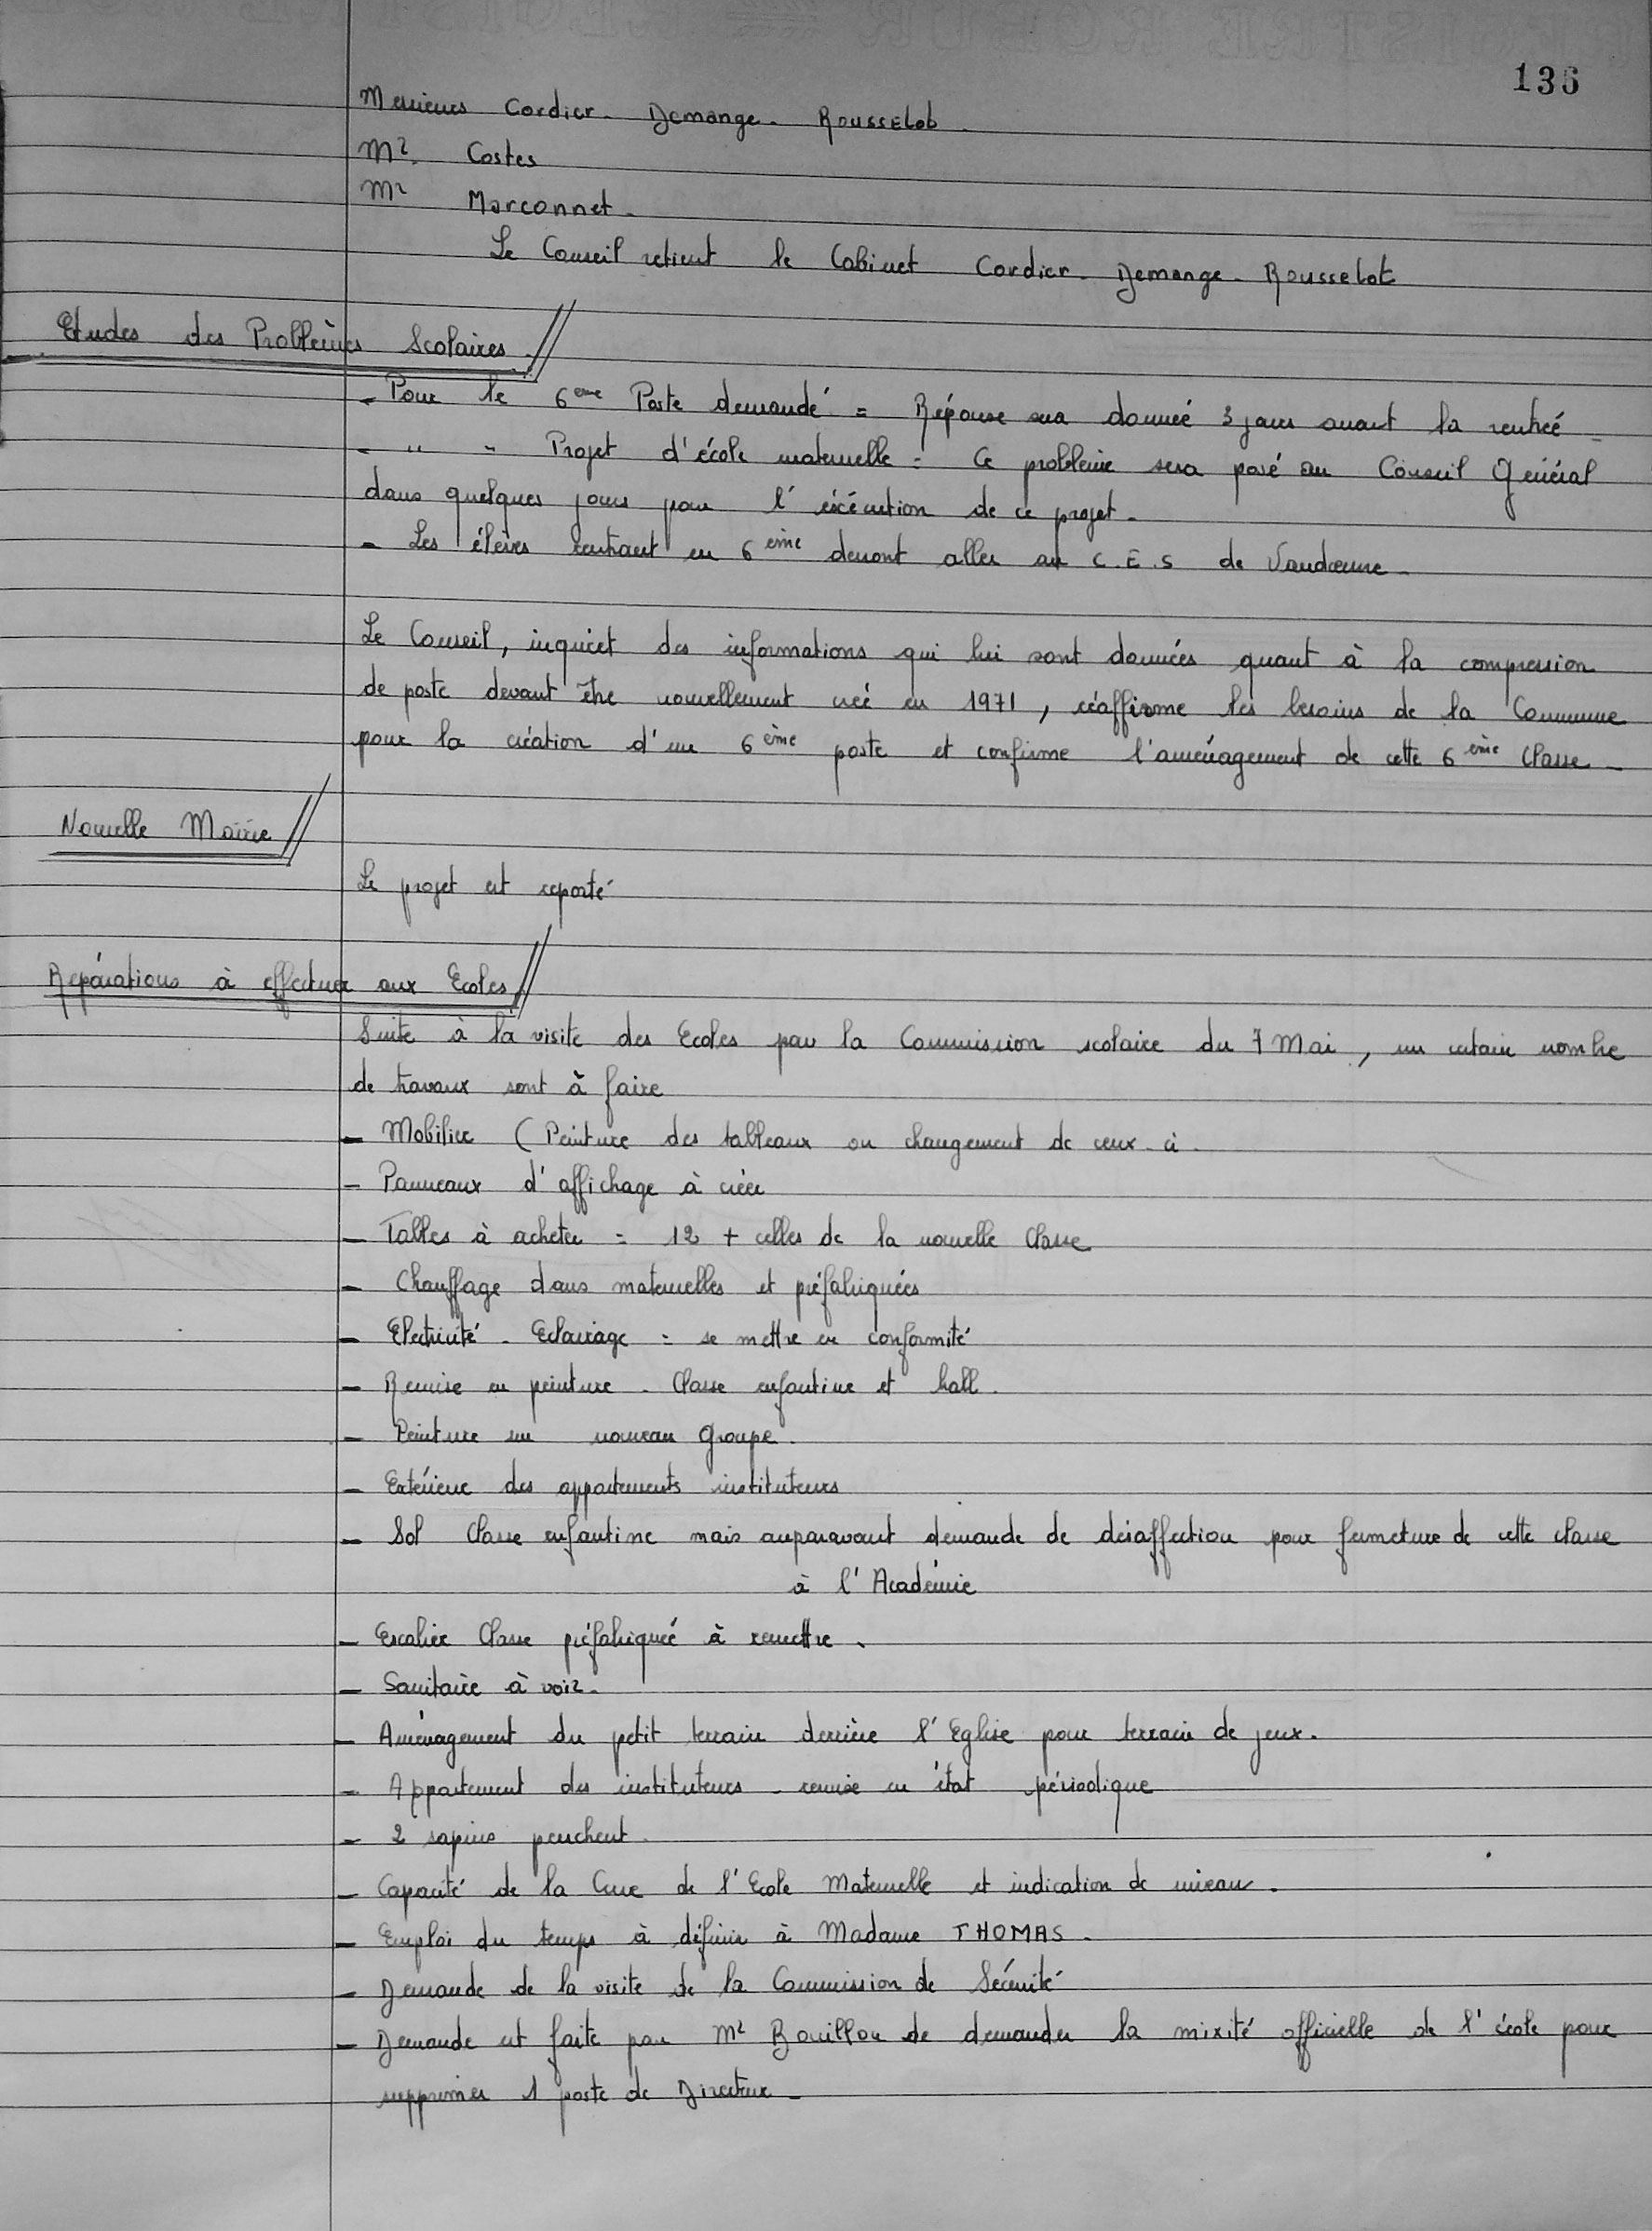 136
Messieurs Cordier - Demange - Rousselot.
Mr. Costes
Mr Marconnet -
Le Conseil retient le Cabinet Cordier - Demange - Rousselot
Etudes des Problèmes Scolaires.
- Pour le 6ème Poste demandé = Réponse sera donnée 3 jours avant la rentrée -
- " " Projet d'école maternelle = Ce problème sera posé au Conseil Général
dans quelques jours pour l'éxécution de ce projet -
- Les élèves rentrant en 6ème devront aller au C.E.S de Vandoeuvre -
Le Conseil, inquiet des informations qui lui sont données quant à la compression
de poste devant être nouvellement créé en 1971, réaffirme les besoins de la Commune
pour la création d'un 6ème poste et confirme l'aménagement de cette 6ème Classe -
Nouvelle Mairie
Le projet est reporté
Réparations à effectuer aux Ecoles.
Suite à la visite des Ecoles par la Commission scolaire du 7 Mai, un certain nombre
de travaux sont à faire
- Mobilier (Peinture des tableaux ou changement de ceux-ci -
- Panneaux d'affichage à créer
- Tables à acheter = 12 + celles de la nouvelle Classe
- Chauffage dans maternelles et préfabriquées
- Electricité - Eclairage = se mettre en conformité
- Remise en peinture - Classe enfantine et hall.
- Peinture au nouveau Groupe.
- Extérieur des appartements instituteurs
- Sol Classe enfantine mais auparavant demande de désaffection pour fermeture de cette classe
à l'Académie
- Escalier Classe préfabriquée à remettre.
- Sanitaire à voir -
- Aménagement du petit terrain derrière l'Eglise pour terrain de jeux.
- Appartement des instituteurs - remise en état périodique
- 2 sapins penchent.
- Capacité de la Cuve de l'Ecole Maternelle et indication de niveau.
- Emploi du temps à définir à Madame THOMAS -
- Demande de la visite de la Commission de Sécurité
- Demande est faite par Mr Bouillon de demander la mixité officielle de l'école pour
supprimer 1 poste de Directeur -